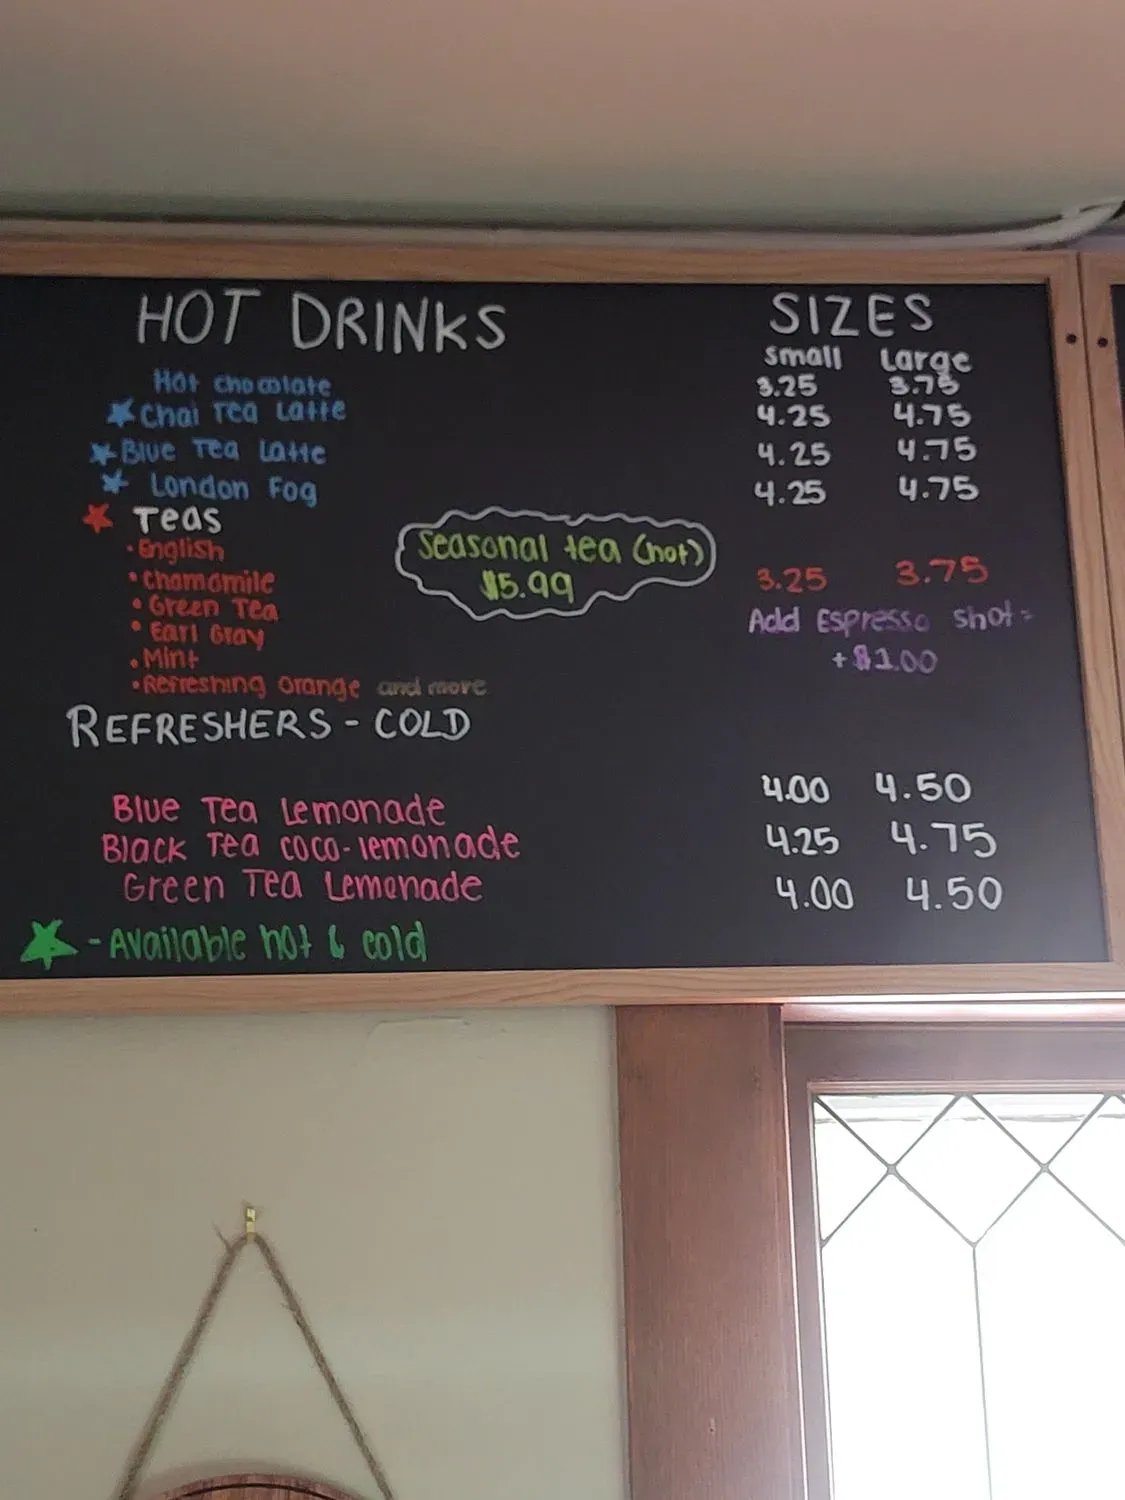 HOT DRINKS
SIZES
Small Large
Hot chocolate 3.25 3.75
Chai Tea Latte 4.25 4.75
Blue Tea Latte 4.25 4.75
London Fog 4.25 4.75
Teas
• English
• Chamomile
• Green Tea
• Earl Gray
• Mint
• Refreshing orange and more
Seasonal tea (hot)
$5.99
3.25 3.75
Add Espresso shot=
+$1.00
REFRESHERS - COLD
Blue Tea Lemonade 4.00 4.50
Black Tea coco-lemonade 4.25 4.75
Green Tea Lemonade 4.00 4.50
- Available hot & cold